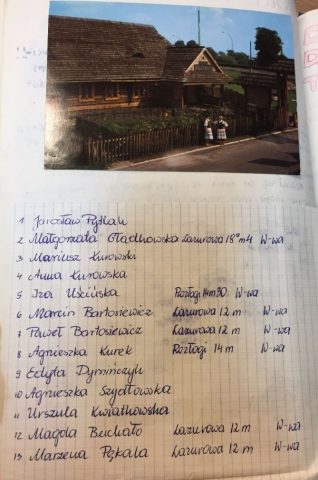 1 Jarosław Pytlak
2 Małgorzata Gładkowska Lazurowa 18ᵃ m4 W-wa
3 Mariusz Kurowski
4 Anna Kurowska
5 Iza Uścińska Rozłogi 14m30 W-wa
6 Marcin Bartosiewicz Lazurowa 12 m W-wa
7 Paweł Bartosiewicz Lazurowa 12 m W-wa
8 Agnieszka Kurek Rozłogi 14 m W-wa
9 Edyta Dyminczyk
10 Agnieszka Szydłowska
11 Urszula Kwiatkowska
12 Magda Beichało Lazurowa 12 m W-wa
13 Marzena Pękala Lazurowa 12 m W-wa